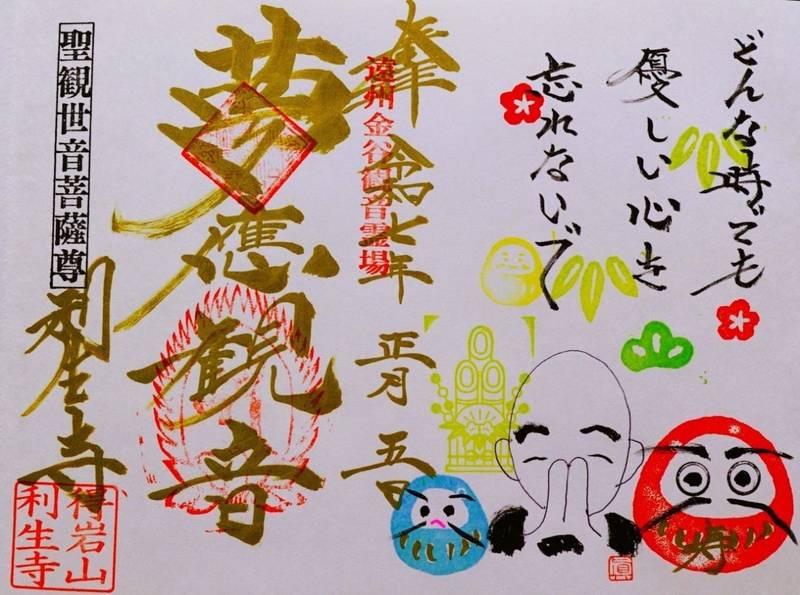 どんな時でも
優しい心を
忘れないで
奉 令和七年 正月 五日
遠州金谷観音霊場
夢應観音
聖観世音菩薩尊
利生寺
得岩山
利生寺
寿